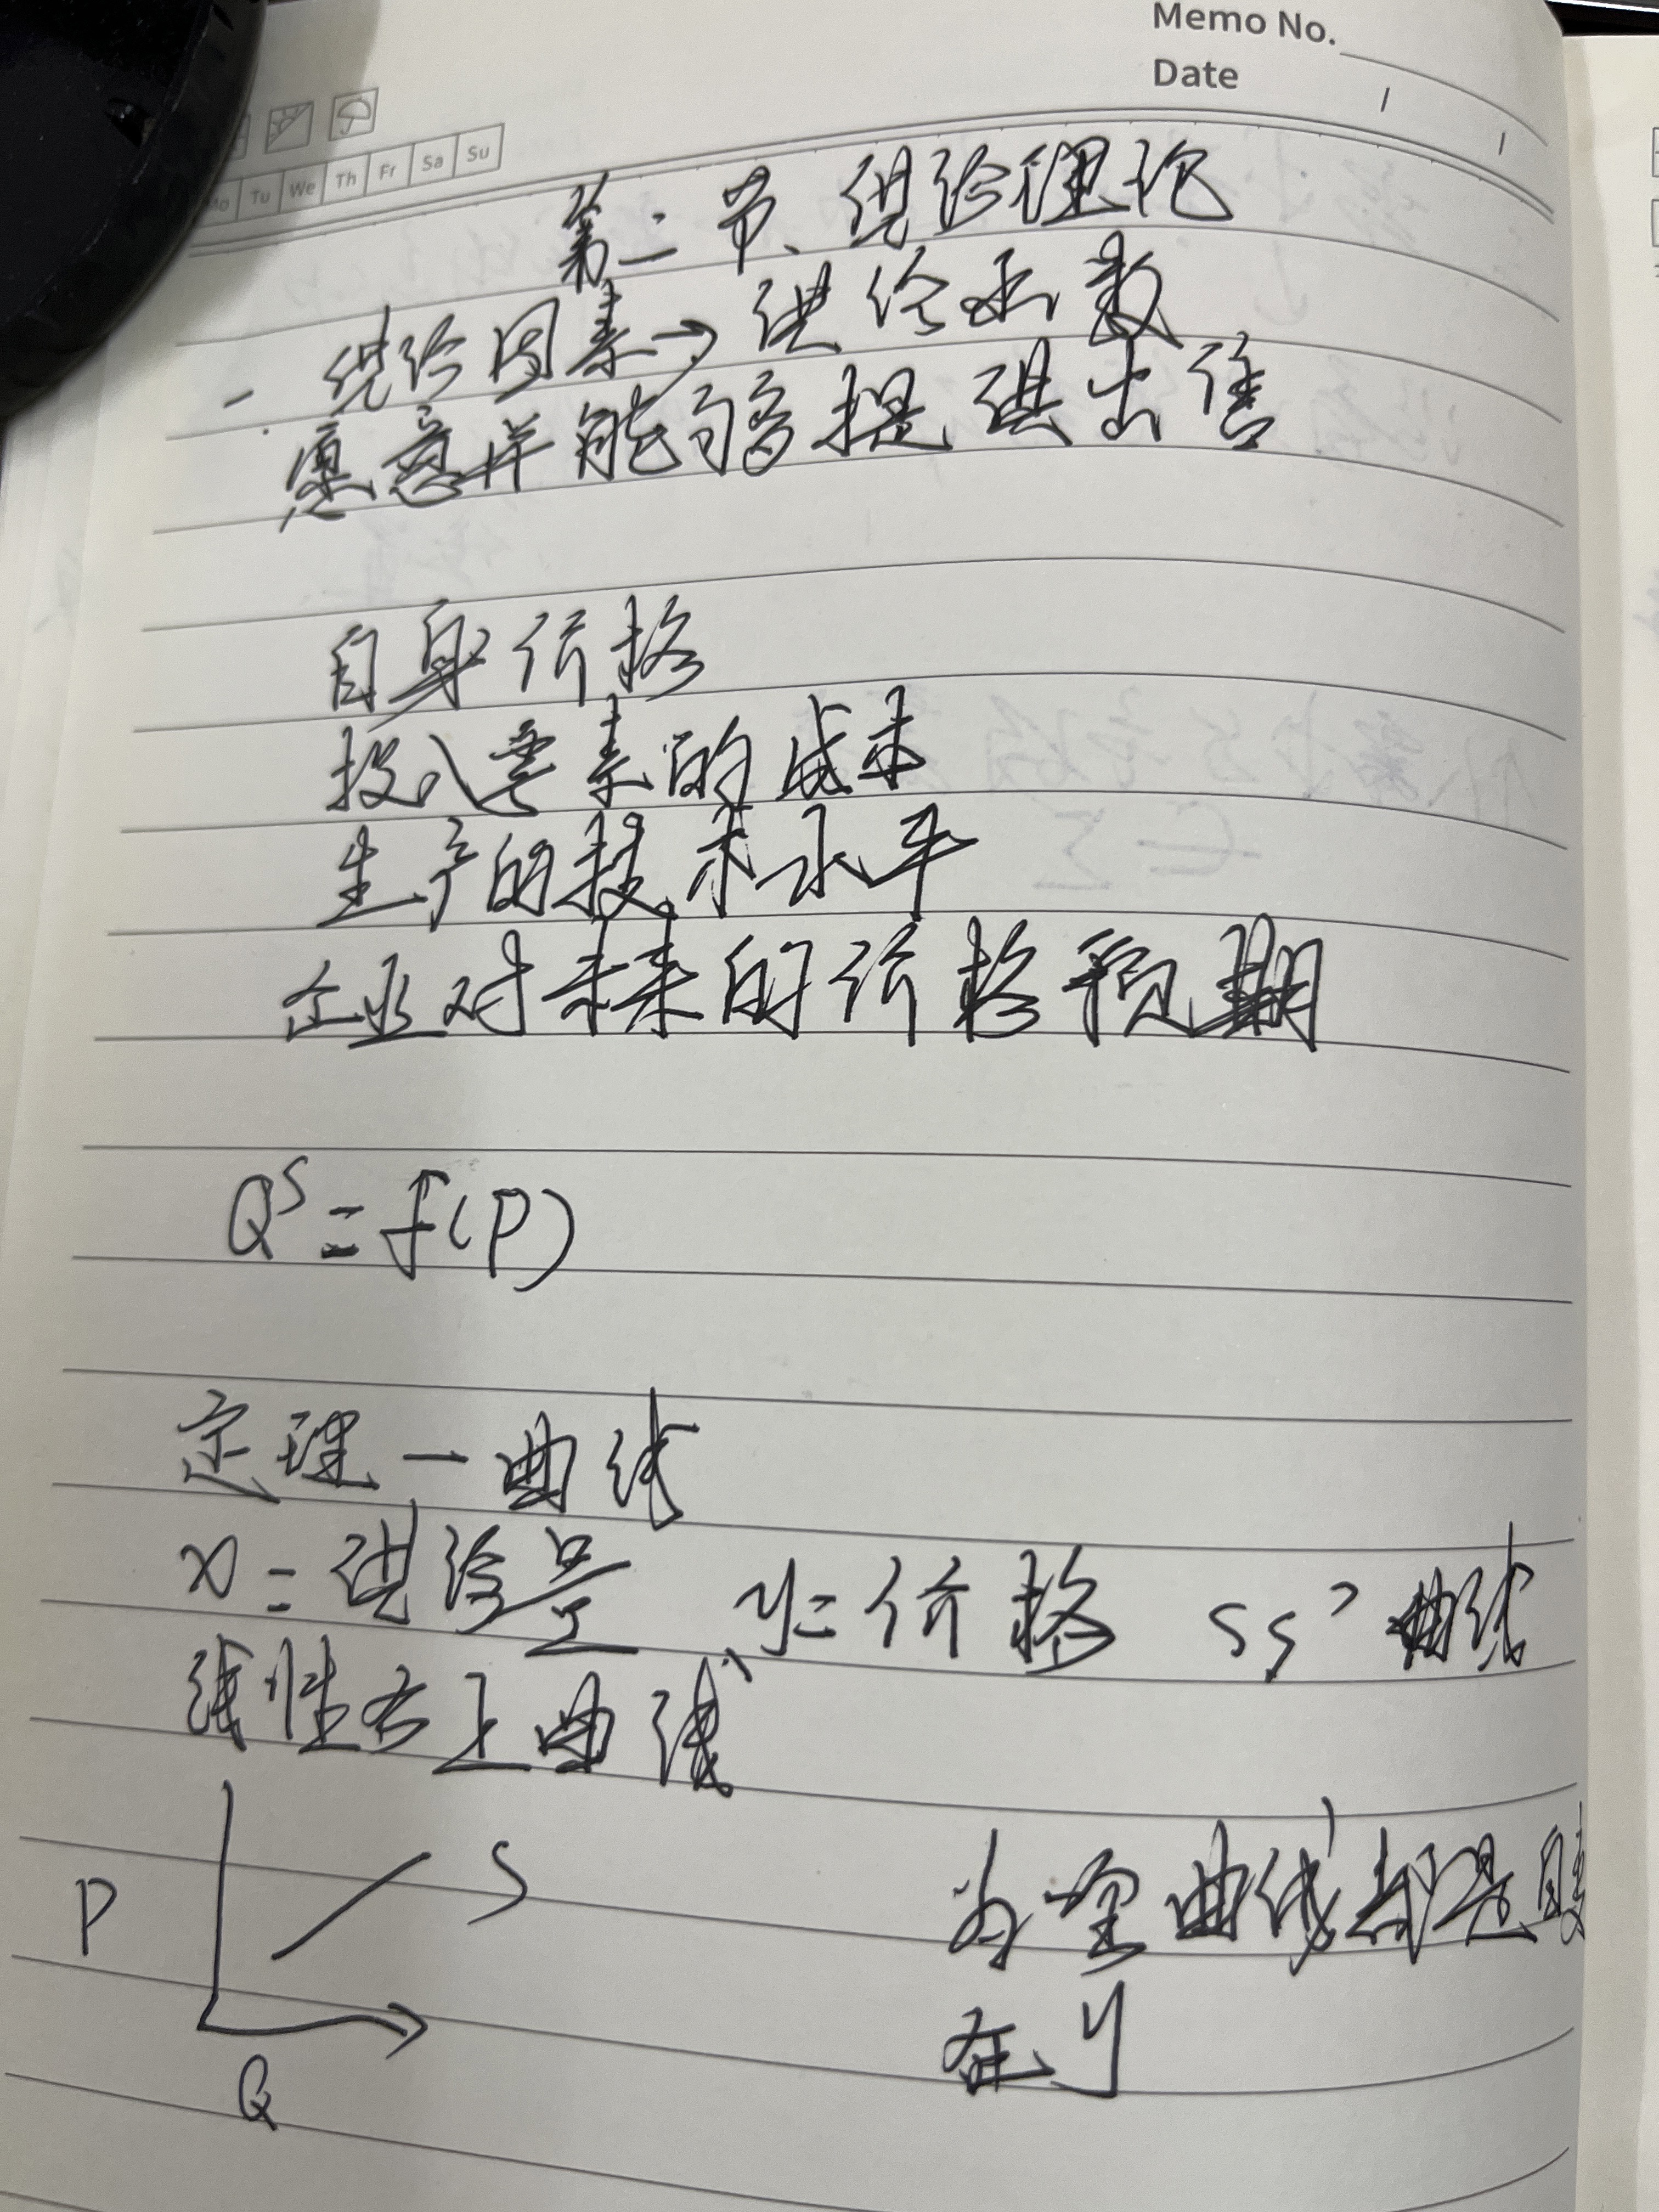 Memo No.
Date
Mo Tu We Th Fr Sa Su
第二节、供给理论
一 供给因素→供给函数
愿意并能够提供出售
自身价格
投入要素的成本
生产的技术水平
企业对未来的价格预期
Q^S = f(P)
定理一曲线
x = 供给量 y = 价格 SS' 曲线
线性右上曲线
S
为 曲线都是
P
在y
Q